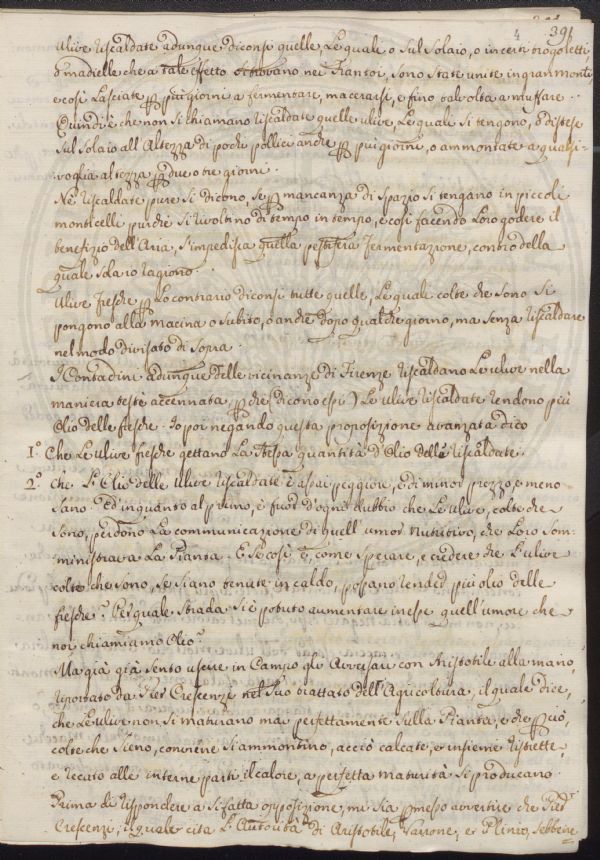 4 391
Ulive riscaldate adunque diconsi quelle, le quale o sul solaio, o in certi trogoletti,
o madielle che a tale effetto si trovano nei Frantoi, sono state unite in gran monti,
e così lasciate p più giorni a fermentare, macerarsi, e fino talvolta a muffare.
Quindi è che non si chiamano riscaldate quelle ulive, le quale si tengono, o distese
sul solaio all'altezza di pochi pollici anche p più giorni, o ammontate a qualsi-
voglia altezza p due o tre giorni.
Nè riscaldate pure si dicono, se p mancanza di spazio si tengano in piccoli
monticelli purchè si rivoltino di tempo in tempo, e così facendo loro godere il
benefizio dell'Aria, s'impedisca quella pestifera fermentazione, contro della
quale solo io ragiono.
Ulive fresche p lo contrario diconsi tutte quelle, le quale colte che sono si
pongono alla macina o subito, o anche dopo qualche giorno, ma senza riscaldare
nel modo divisato di sopra.
I Contadini adunque delle vicinanze di Firenze riscaldano le ulive nella
maniera testè accennata, p chè (dicono essi) le ulive riscaldate rendono più
Olio delle fresche. Io poi negando questa proposizione avanzata dico
1.° Che le ulive fresche gettano la stessa quantità d'Olio delle riscaldate.
2.° che l'Olio delle ulive riscaldate è assai peggiore, e di minor prezzo, e meno
sano. Ed in quanto al primo, è fuor d'ogni dubbio che le ulive, colte che
sono, perdono la communicazione di quell'umor nutritivo, che loro som-
ministrava la Pianta. E se così è, come sperare, e credere che l'ulive
colte che sono, se siano tenute in caldo, possano render più olio delle
fresche? Per quale strada si è potuto aumentare in esse quell'umore che
noi chiamiamo Olio?
Ma già già sento uscire in Campo gli Avversari con Aristotile alla mano,
riportato da Pier Crescenzi nel suo trattato dell'Agricoltura, il quale dice,
che le ulive non si maturano mai perfettamente sulla Pianta, e che p ciò,
colte che sieno, conviene si ammontino, acciò calcate, e insieme ristrette
e recato alle interne parti il calore, a perfetta maturità si producano.
Prima di rispondere a sì fatta opposizione, mi sia p messo avvertire che Pier
Crescenzi, il quale cita l'autorità di Aristotile, Varrone, e Plinio, sebbene